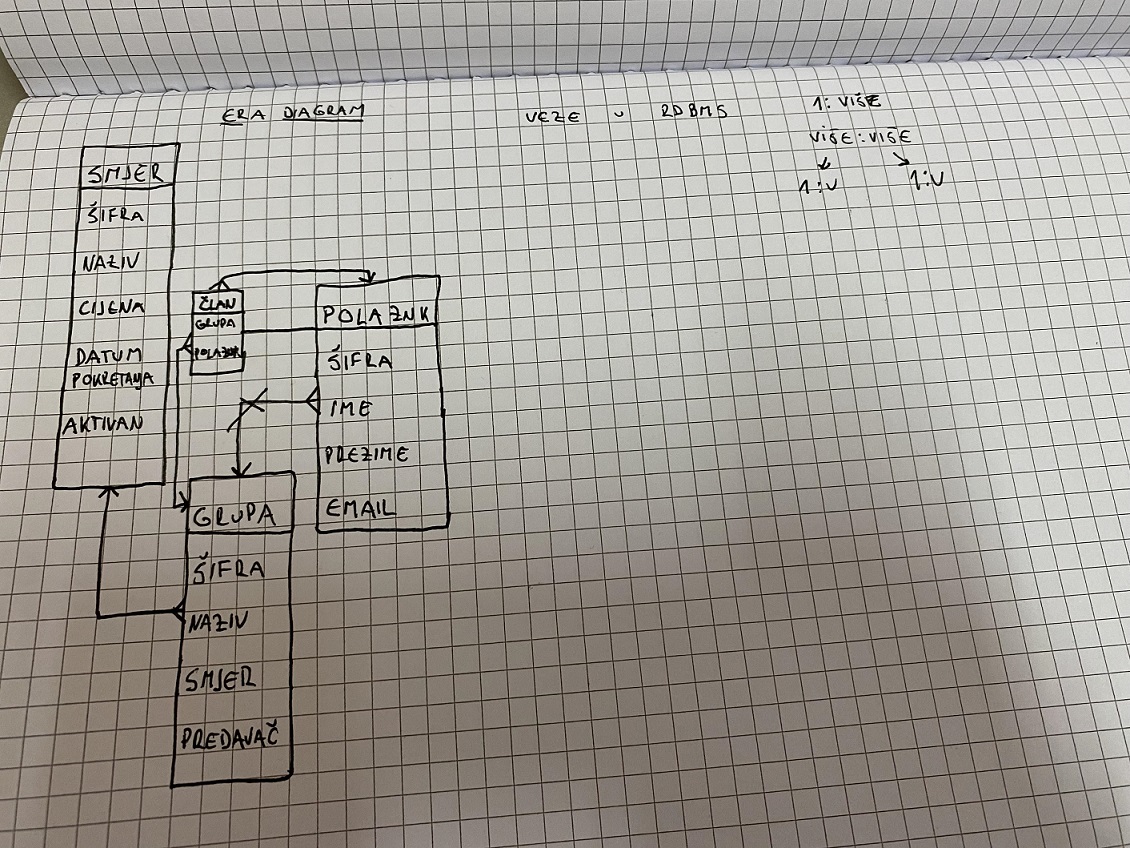 ERA DIAGRAM
VEZE U RDBMS
1: VIŠE
VIŠE:VIŠE
1:V 1:V
SMJER
ŠIFRA
NAZIV
CIJENA
DATUM
POKRETANJA
AKTIVAN
ČLAN
GRUPA
POLAZNIK
POLAZNK
ŠIFRA
IME
PREZIME
EMAIL
GRUPA
ŠIFRA
NAZIV
SMJER
PREDAVAČ